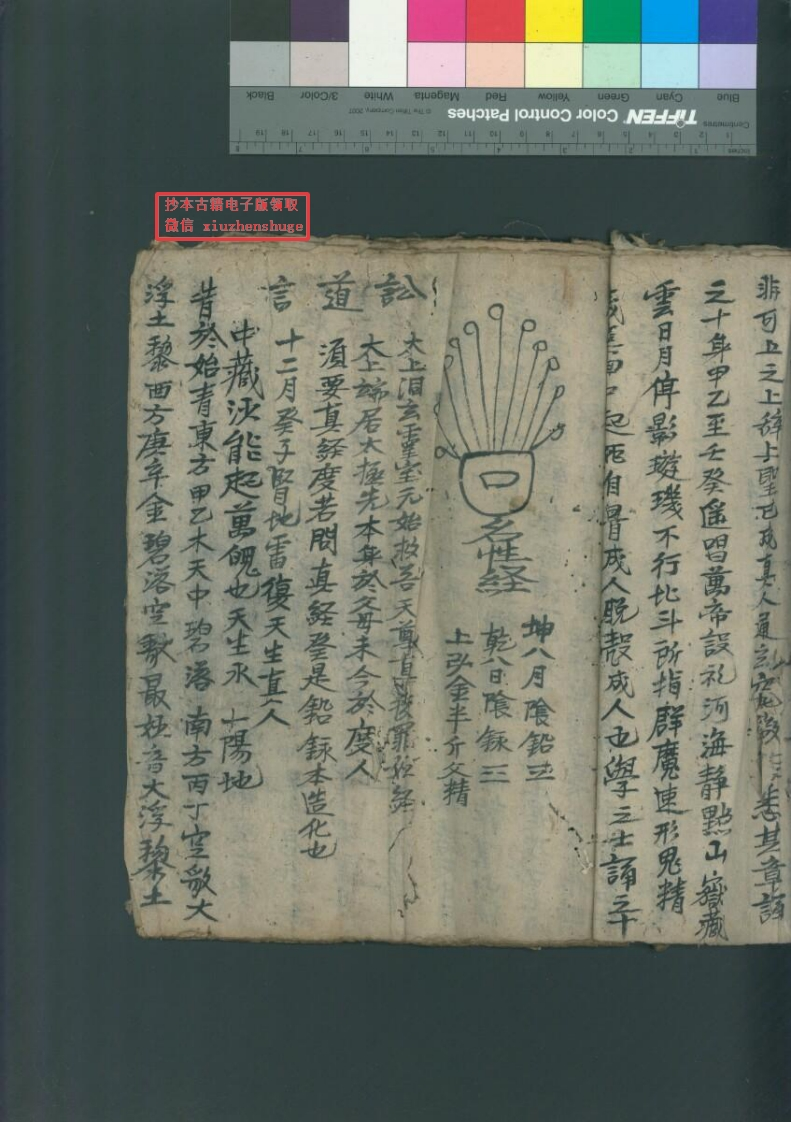 Blue
Cyan
Green
Yellow
Red
Magenta
White
3/Color
Black
TIFFEN Color Control Patches
© The Tiffen Company, 2007
Centimetres
Inches
抄本古籍电子版领取
微信 xiuzhenshuge
非可上之上辞上聖已成真人通玄究 悉其章誦
之十年甲乙至壬癸遙唱萬帝設礼河海靜黙山嶽藏
雲日月停影璇璣不行北斗所指群魔速形鬼精
起死自 成人脱殼成人也學之士誦之十
坤八月陰鉛
乾八日陰録
上弘金半斤父精
性経
訟道言
太上泪玄靈宝元始救吾天尊
太上端居太極先本年於父母未今於度人
須要真経度若問真経癸是鉛録本造化也
十二月癸子 地雷復天生真人
中藏 能起萬魄也天生水 十陽地
昔於始青東方甲乙木天中碧落 南方丙丁空歌大
浮土黎西方庚辛金碧落空歌最 音大浮黎土